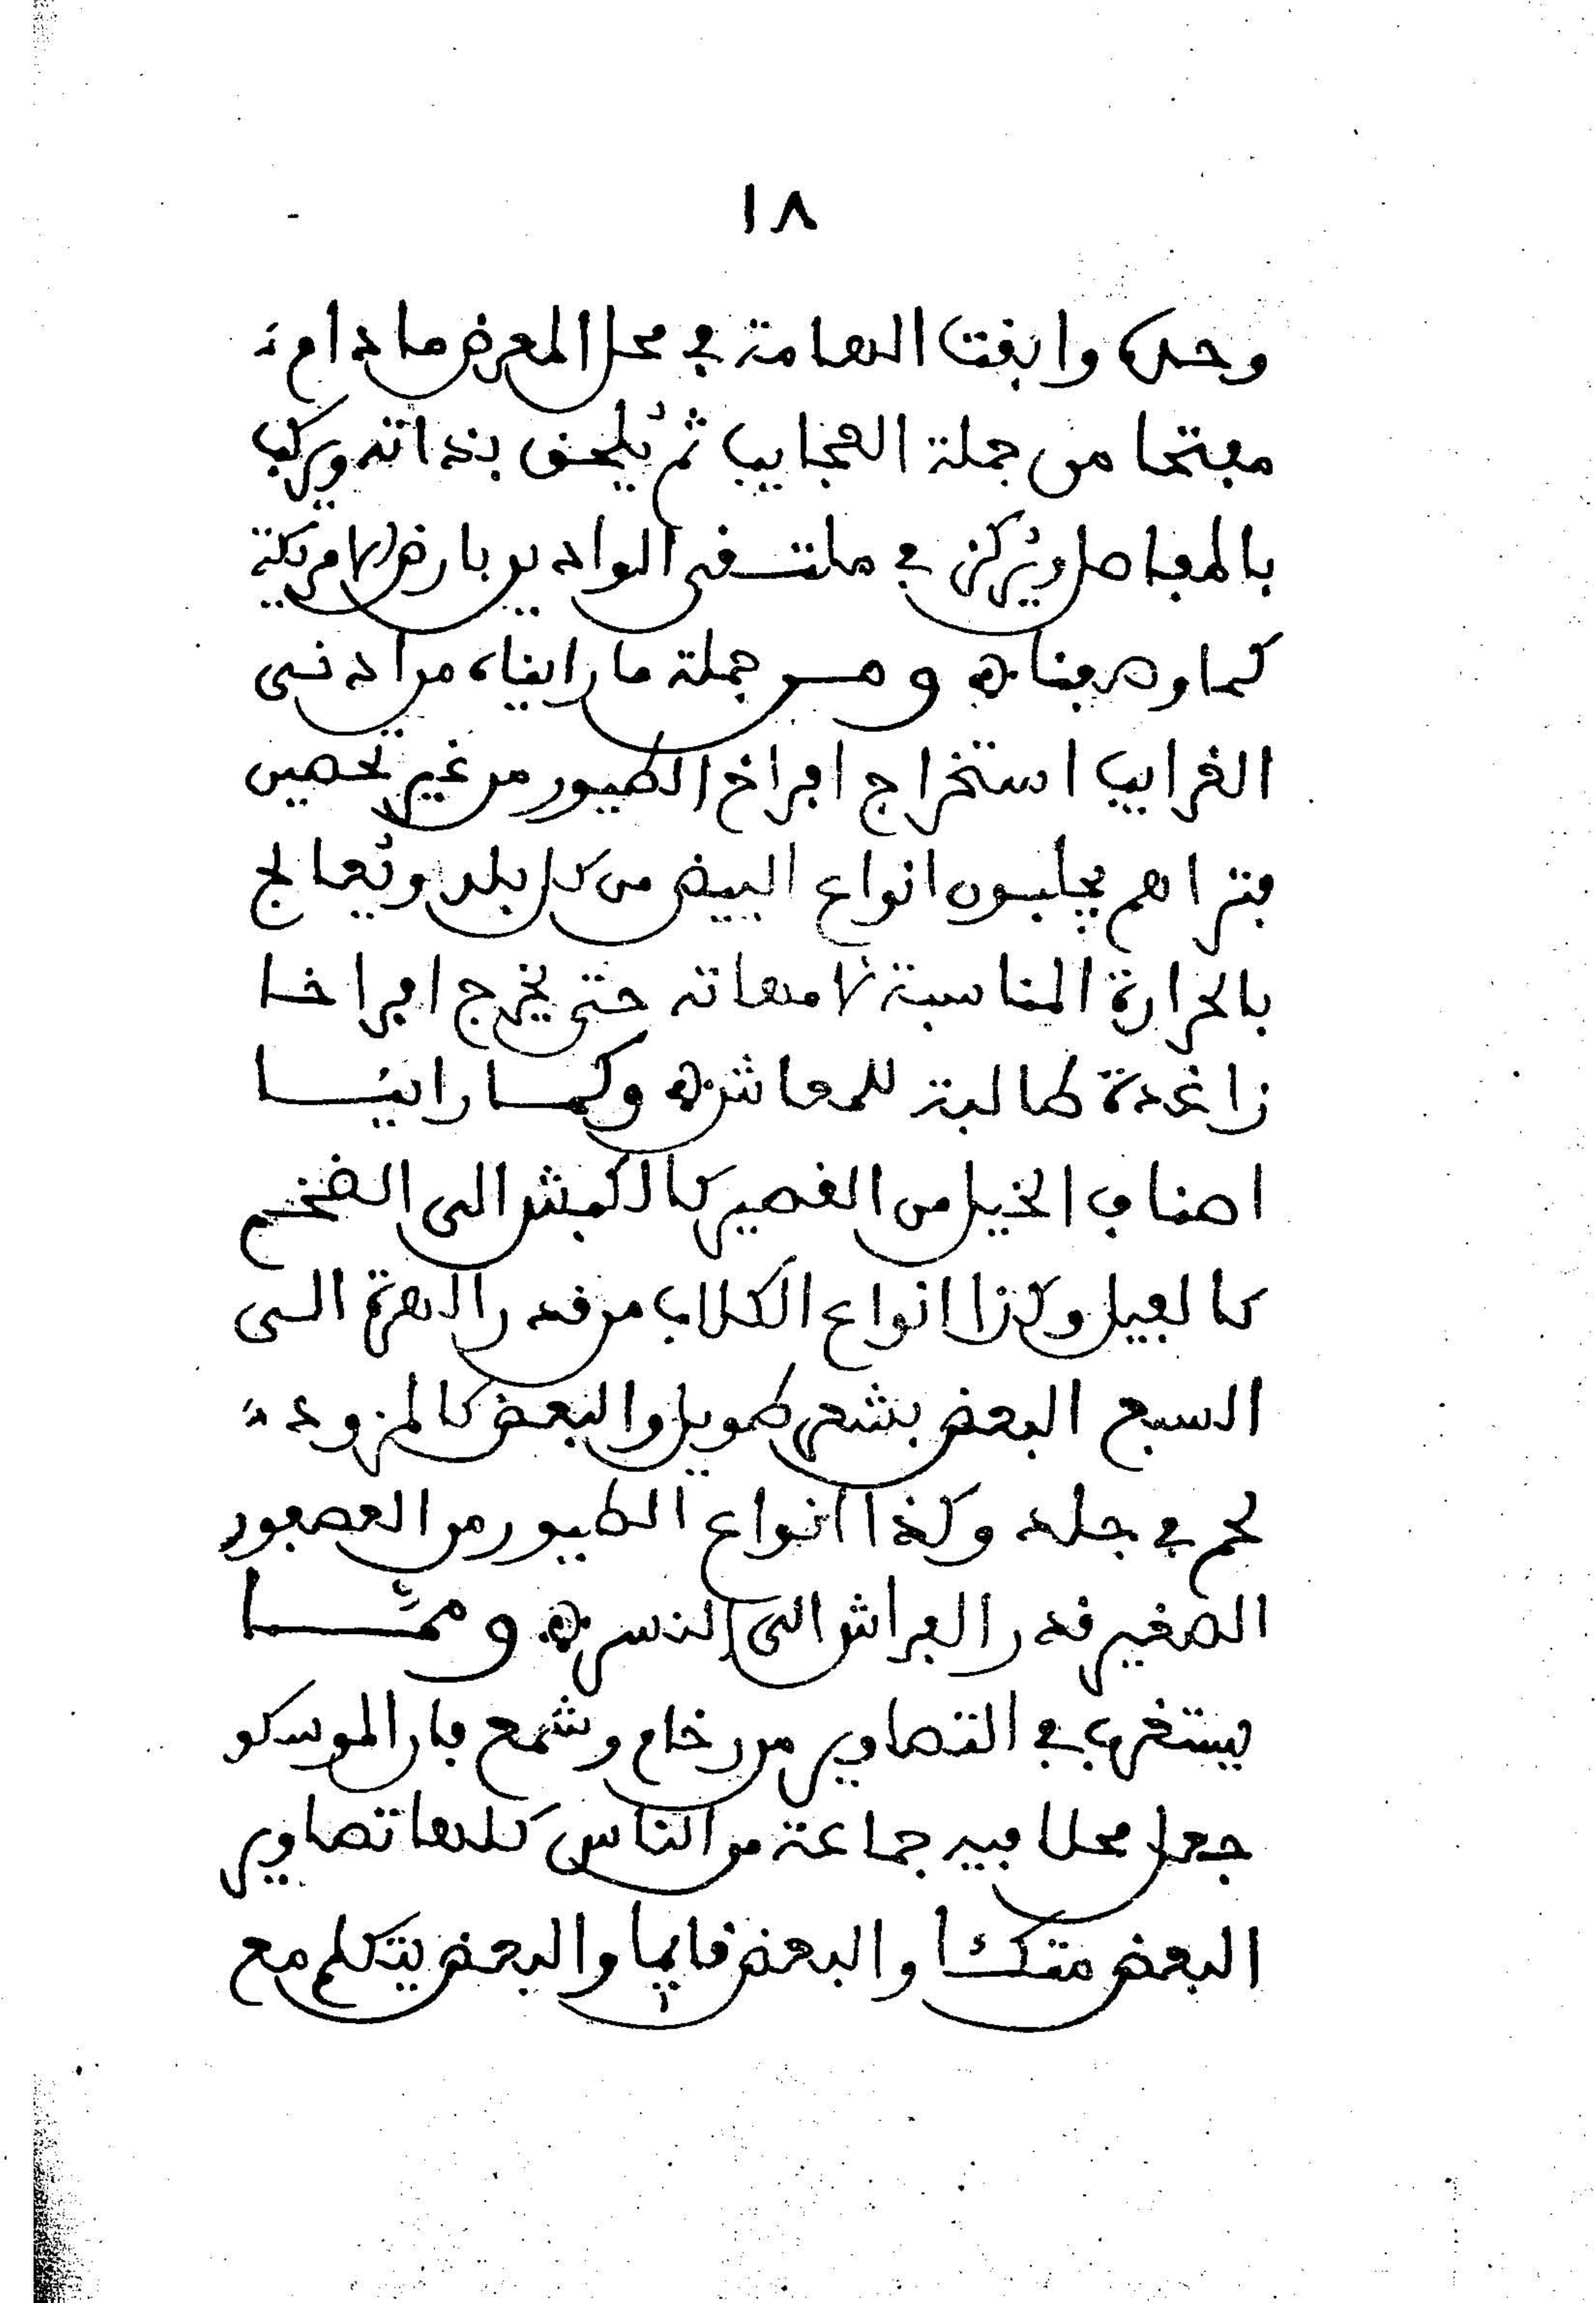 ١٨
وحده وابقت الهامة في محل المعرض ما دام
مفتحا من جملة العجايب ثم يُلحق بذاته ويركب
بالمفاصل ويُركز في ملتقى الواديين بارض الامريكة
كما وصفنا ه ومن جملة ما رايناه من ادنى
الغرايب استخراج افراخ الطيور من غير تحصين
فتراهم يجلبون انواع البيض من كل بلد ويُعالج
بالحرارة المناسبة لامهاته حتى يخرج افراخا
زاغدة طالبة للمعاش ه وكما راينا
اصناف الخيل من القصير كالكبش الى الضخم
كالفيل وكذا انواع الكلاب من قدر الهرة الى
السبع البعض بشعر طويل والبعض كالمزود
لحم في جلد وكذا انواع الطيور من العصفور
الصغير قدر الفراش الى النسر ه وممّا
يستغرب في التصاوير من رخام وشمع فار الموسكو
جعل محلا فيه جماعة من الناس كلها تصاوير
البعض متكئا والبعض قايما والبعض يتكلم مع